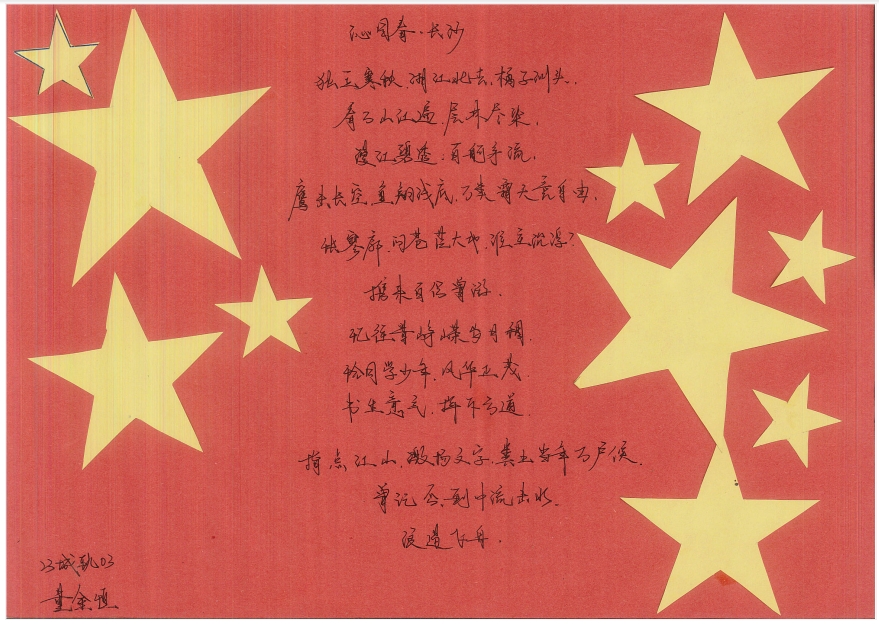 沁园春·长沙
独立寒秋,湘江北去,橘子洲头.
看万山江遍,层林尽染,
漫江碧透,百舸争流.
鹰击长空,鱼翔浅底,万类霜天竞自由.
怅寥廓,问苍茫大地,谁主沉浮?
携来百侣曾游.
忆往昔峥嵘岁月稠.
恰同学少年,风华正茂.
书生意气,挥斥方遒.
指点江山,激扬文字,粪土当年万户侯.
曾记否,到中流击水,
浪遏飞舟.
23城轨03
童